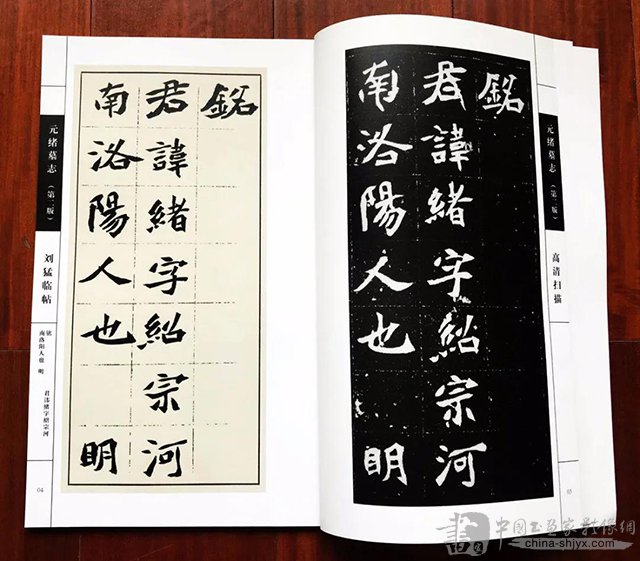 元绪墓志（第二版）
刘猛临帖
铭
君讳绪字绍宗河
南洛阳人也 明
04
銘
君諱緒字紹宗河
南洛陽人也 明
銘
君諱緒字紹宗河
南洛陽人也 明
元绪墓志（第二版）
高清扫描
05
中國書畫家影像網
china-shjyx.com